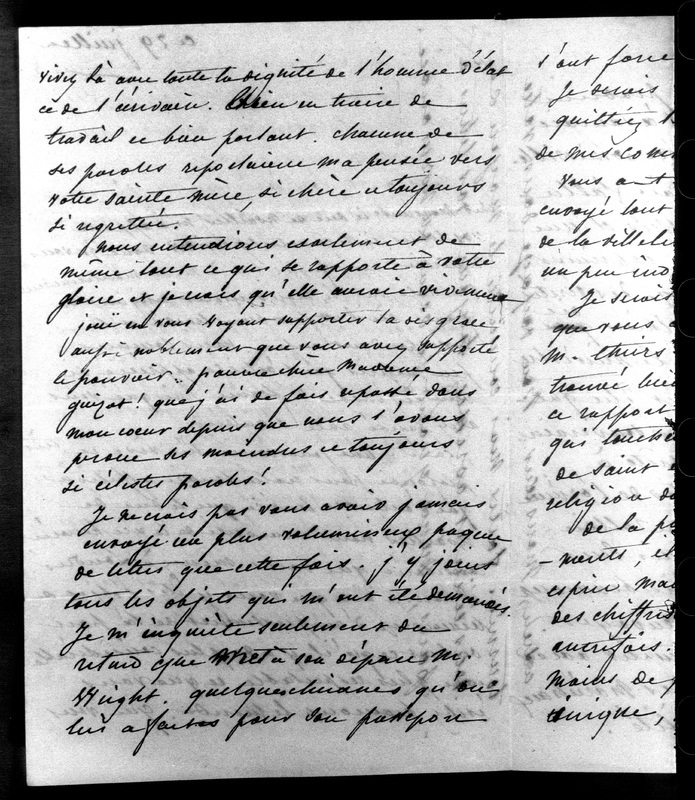 vivez là avec toute la dignité de l'homme d'état
et de l'écrivain. bien en train de
travail et bien portant. chacune de
ses paroles reportaient ma pensée vers
votre sainte mère, si chère et toujours
si regrettée.
nous entendions seulement de
même tout ce qui se rapporte à votre
gloire et je crois qu'elle aurait vivement
joui en vous voyant supporter la disgrace
aussi noblement que vous avez supporté
le pouvoir. pauvre chère Madame
guizot! que j'ai de fois repassé dans
mon coeur depuis que nous l'avons
perdue ses moindres et toujours
si célestes paroles!
Je ne crois pas vous avoir jamais
envoyé un plus volumineux paquet
de lettres que cette fois. j'y joins
tous les objets qui m'ont été demandés.
Je m'inquiète seulement du
retard que met à son départ M.
Wright. quelques chicanes qu'on
lui a faites pour son passeport
s'ont force
Je serais
quittiez
de mes com
vous ont
envoyé tout
de la ville
un peu ind
Je serais
que vous
M. thiers
trouvé bien
ce rapport
qui touche
de saint
religion
de la
-ments, et
esprit mai
des chiffres
autrefois.
moins de
unique,
ce 29 juillet